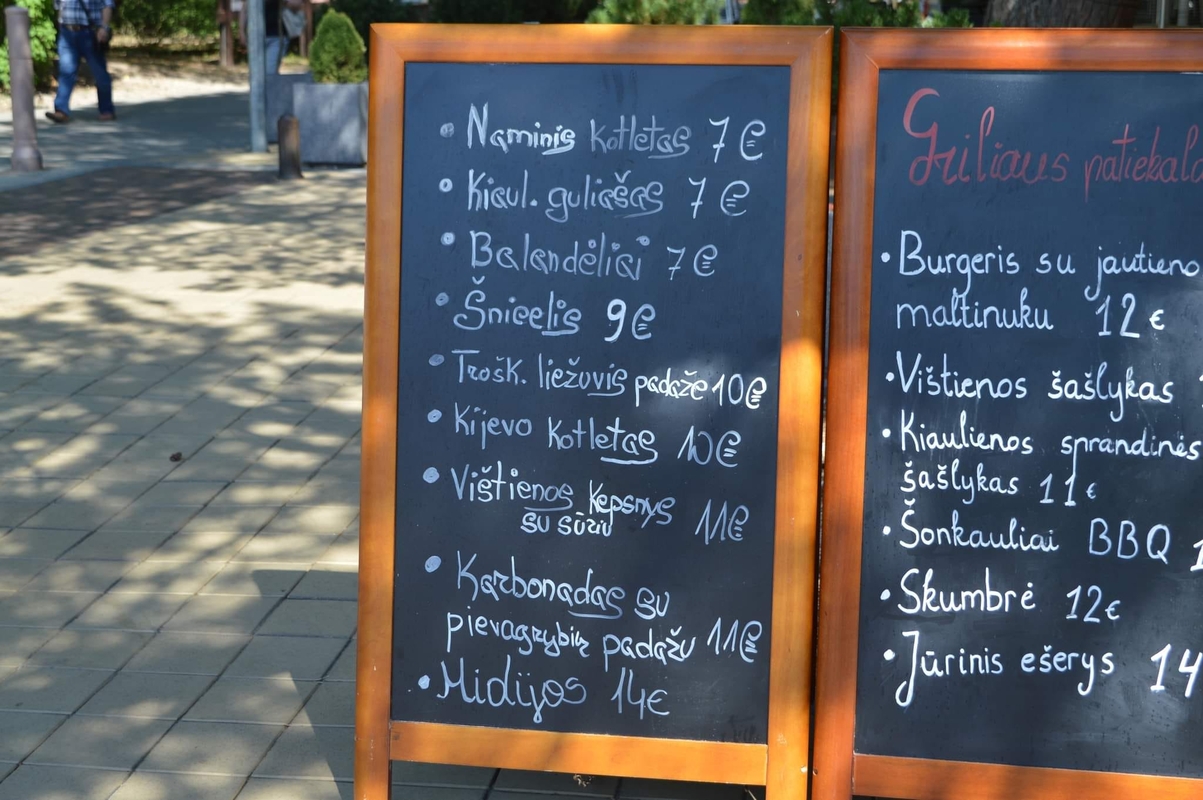 • Naminis kotletas 7€
• Kiaul. guliašas 7€
• Balandėliai 7€
• Šnicelis 9€
• Trošk. liežuvis padaže 10€
• Kijevo kotletas 10€
• Vištienos kepsnys 11€
su sūriu
• Karbonadas su
pievagrybių padažu 11€
• Midijos 14€
Griliaus patiekala
• Burgeris su jautieno
maltinuku 12€
• Vištienos šašlykas
• Kiaulienos sprandinės
šašlykas 11€
• Šonkauliai BBQ 1
• Skumbrė 12€
• Jūrinis ešerys 14